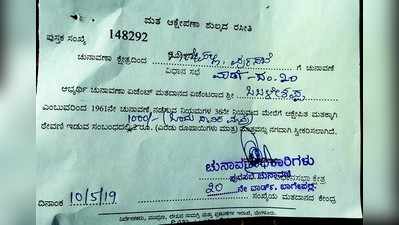 ಮತ ಆಕ್ಷೇಪಣಾ ಶುಲ್ಕದ ರಸೀತಿ
ಪುಸ್ತಕ ಸಂಖ್ಯೆ 148292
ಚುನಾವಣಾ ಕ್ಷೇತ್ರದಿಂದ ಗೆ ಚುನಾವಣೆ
ವಿಧಾನ ಸಭೆ ವಾರ್ಡ್-ನಂ. 20
ಅಭ್ಯರ್ಥಿ ಚುನಾವಣಾ ಏಜೆಂಟ್ ಮತದಾನದ ಏಜೆಂಟರಾದ ಶ್ರೀ
ಎಂಬುವರಿಂದ 1961ನೇ ಚುನಾವಣೆ ನಡೆಸುವ ನಿಯಮಗಳ 36ನೇ ನಿಯಮದ ಮೇರೆಗೆ ಆಕ್ಷೇಪಿತ ಮತಕ್ಕಾಗಿ
1000/- (ಒಂದು ಸಾವಿರ
ಠೇವಣಿ ಇಡುವ ಸಂಬಂಧದಲ್ಲಿ 2 ರೂ. (ಎರಡು ರೂಪಾಯಿಗಳು ಮಾತ್ರ) ನಗದಾಗಿ ಸ್ವೀಕರಿಸಲಾಗಿದೆ.
ಚುನಾವಣಾಧಿಕಾರಿಗಳು
ಪುರಸಭೆ ಚುನಾವಣೆ ವಿಧಾನಸಭಾ ಕ್ಷೇತ್ರ
20 ನೇ ವಾರ್ಡ್, ಬಾಗೇಪಲ್ಲಿ
ದಿನಾಂಕ 10/5/19 ಸಂಖ್ಯೆಯ ಮತದಾನದ ಕೇಂದ್ರ